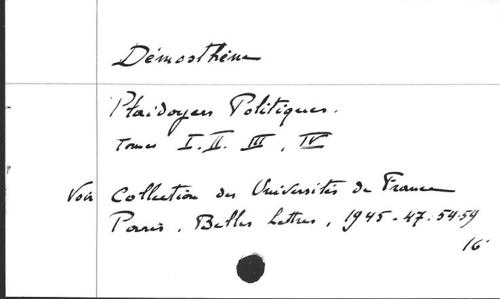 Démosthène
Plaidoyers Politiques.
Tomes I. II. III, IV
Voir Collection des Universités de France
Paris, Belles Lettres, 1945-47-54-59
16°